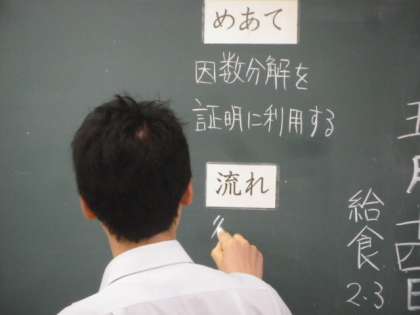 五月十四日
給食
2.3
めあて
因数分解を
証明に利用する
流れ